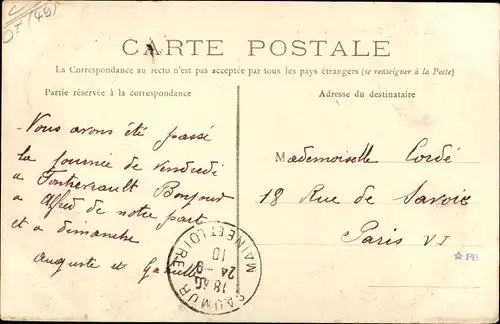 DT (49)
CARTE POSTALE
La Correspondance au recto n'est pas acceptée par tous les pays étrangers (se renseigner à la Poste)
Partie réservée à la correspondance
Adresse du destinataire
Vous avons été passé
la journée de vendredi
a Fontevrault Bonjour
a Alfred de notre part
et a dimanche
Auguste et
Mademoiselle Cordé
18 Rue de Savoie
Paris VI
SAUMUR
MAINE ET LOIRE
18 40
24 - 9
10
☆ PB